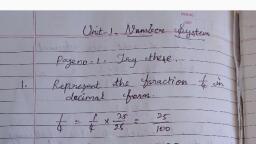 Unit-1. Number System
Page no-1. Try these.
1. Represent the fraction 1/4 in
decimal form
1/4 = 1/4 × 25/25 = 25/100